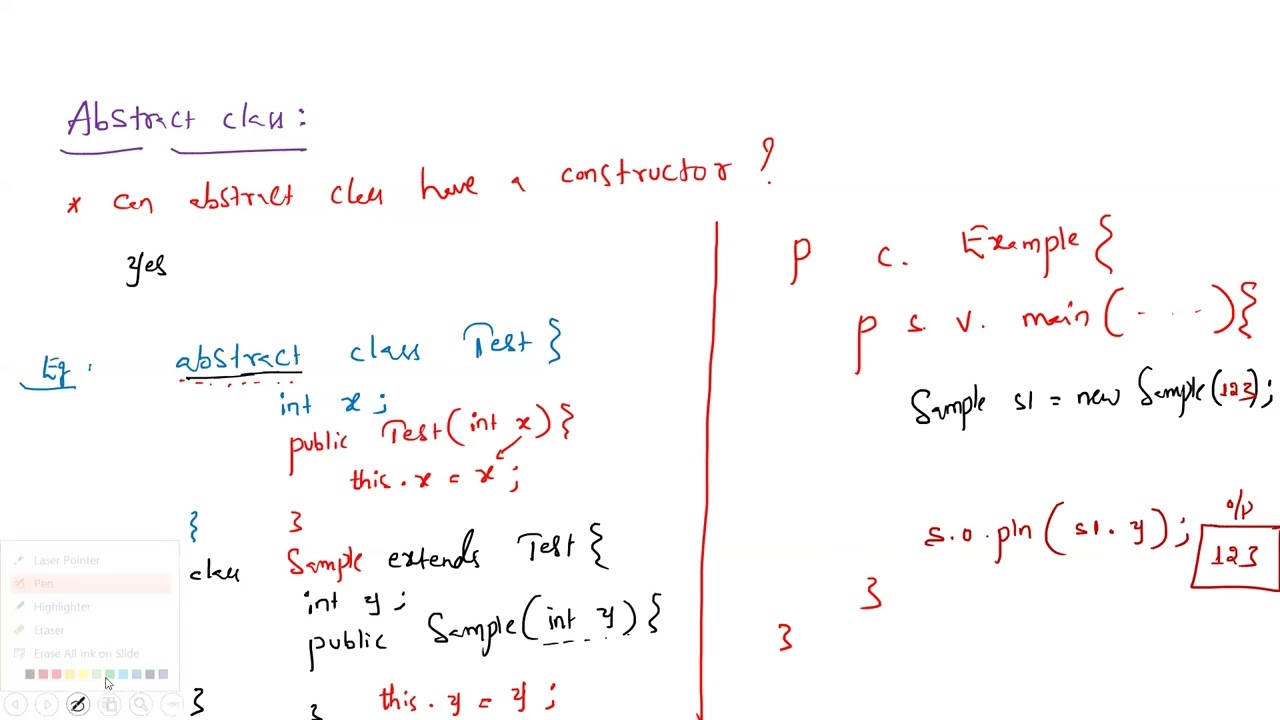 Abstract class:
* can abstract class have a constructor ?
Yes
Eg: abstract class Test {
int x;
public Test(int x){
this.x = x;
}
}
class Sample extends Test {
int y;
public Sample(int y){
this.y = y;
}
}
p c. Example {
p s. v. main(....){
Sample s1 = new Sample(123);
s.o.pln(s1.y);
o/p
123
}
}
Laser Pointer
Pen
Highlighter
Eraser
Erase All Ink on Slide